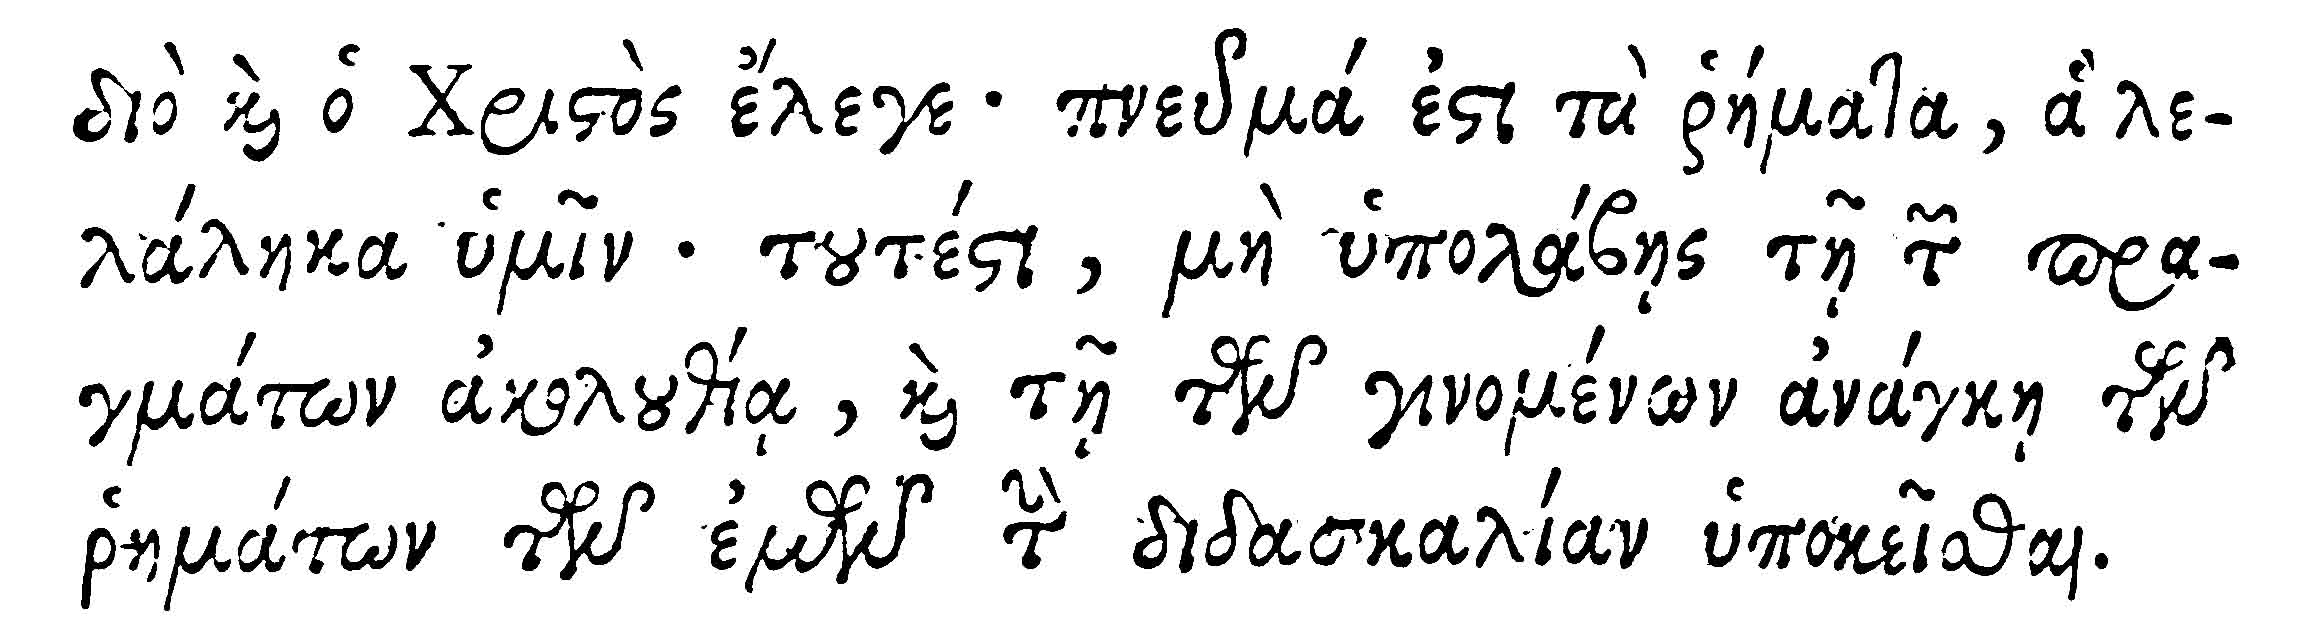 διὸ ϗ̀ ὁ Χριϛὸς ἔλεγε· πνεῦμά ἐϛι τὰ ῥήματα, ἃ λε-
λάληκα ὑμῖν· τȣτέϛι, μὴ ὑπολάβῃς τῇ τ͂ πρα-
γμάτων ἀκολȣθίᾳ, ϗ̀ τῇ τῶν γινομένων ἀνάγκῃ τῶν
ῥημάτων τῶν ἐμῶν τ̀ διδασκαλίαν ὑποκεῖσθαι.